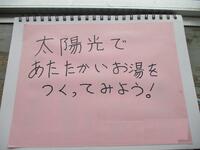 太陽光で
あたたかいお湯を
つくってみよう!